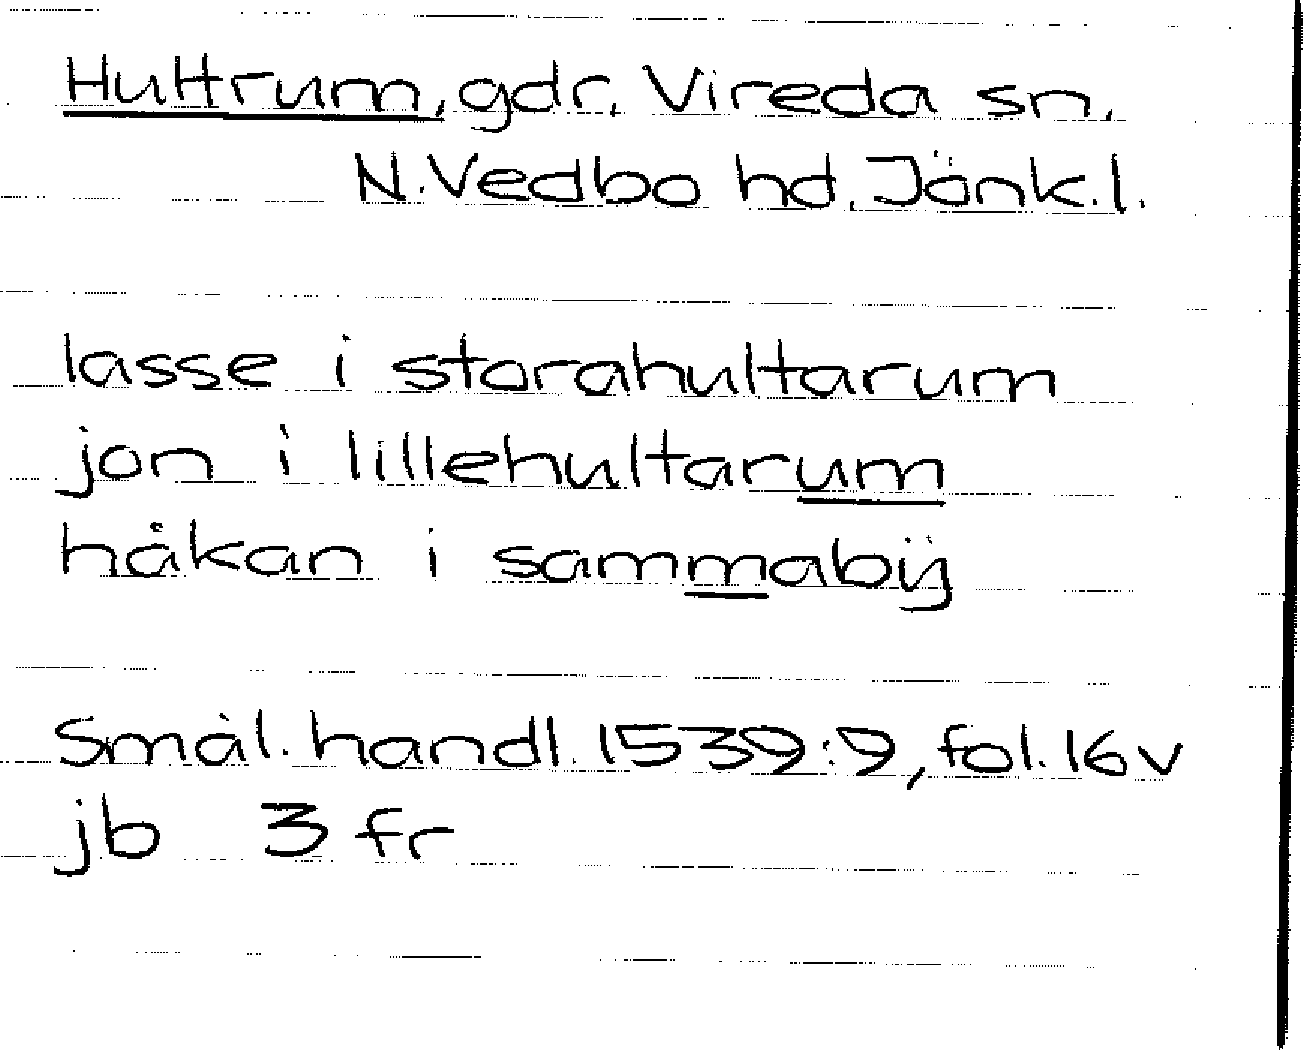 Hultrum, gdr, Vireda sn,
N. Vedbo hd, Jönk. l.
lasse i storahultarum
jon i lillehultarum
håkan i sammabÿ
Smål. handl. 1539:9, fol. 16 v
jb 3 fr